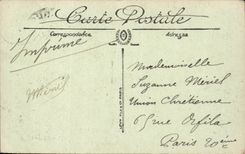 Carte Postale
Correspondance
Adresse
Imprimé
Mademoiselle
Suzanne Mériel
Union Chrétienne
65 rue Orfila
Paris 20ème